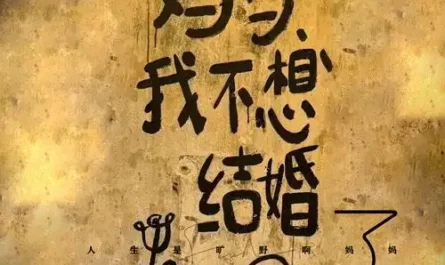 妈妈、
我不想
结婚
人生是旷野啊妈妈
了